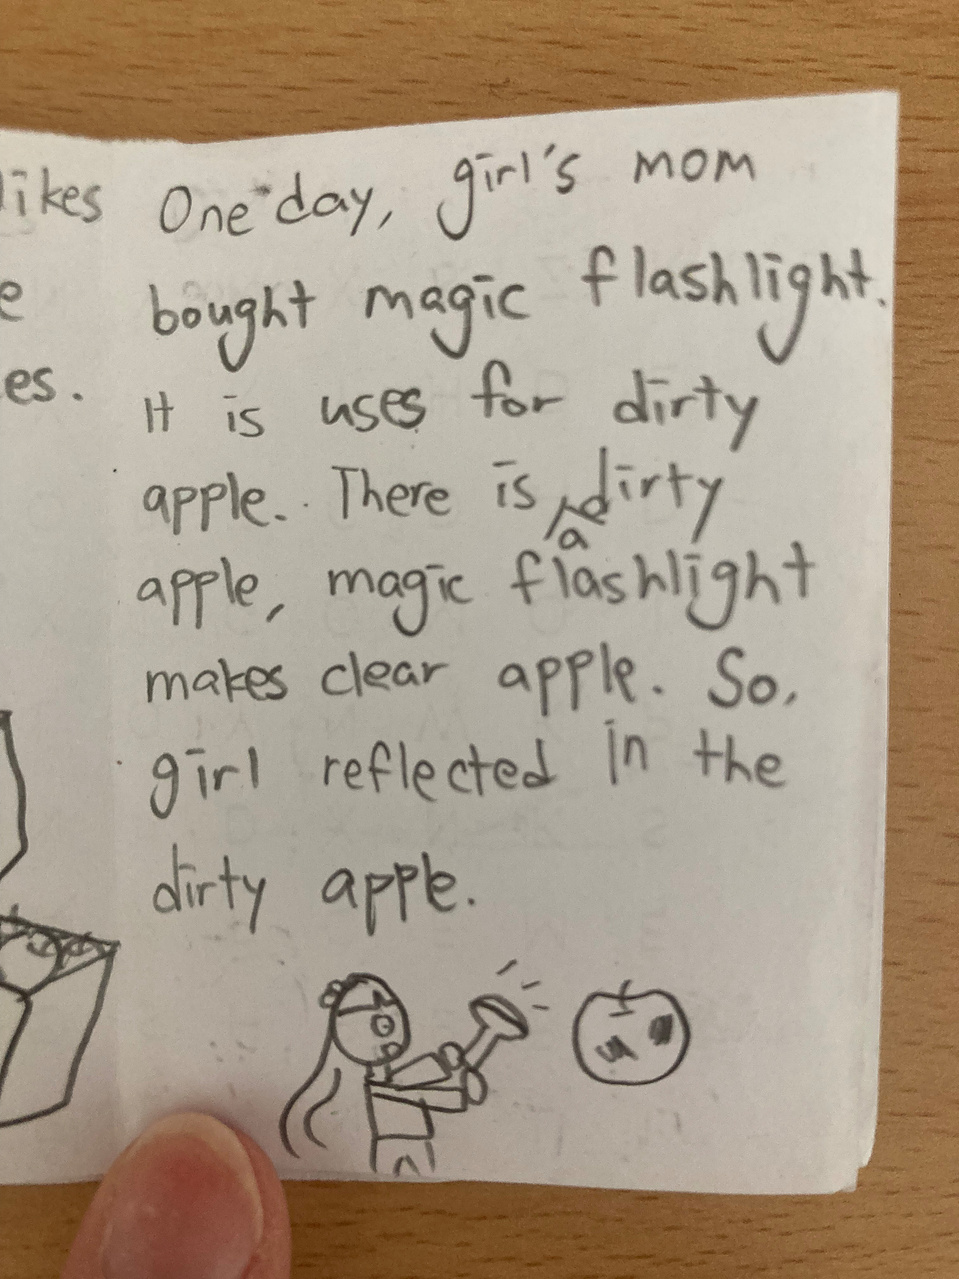 likes
e
es.
One day, girl's mom
bought magic flashlight.
It is uses for dirty
apple. There is a dirty
apple, magic flashlight
makes clear apple. So,
girl reflected in the
dirty apple.